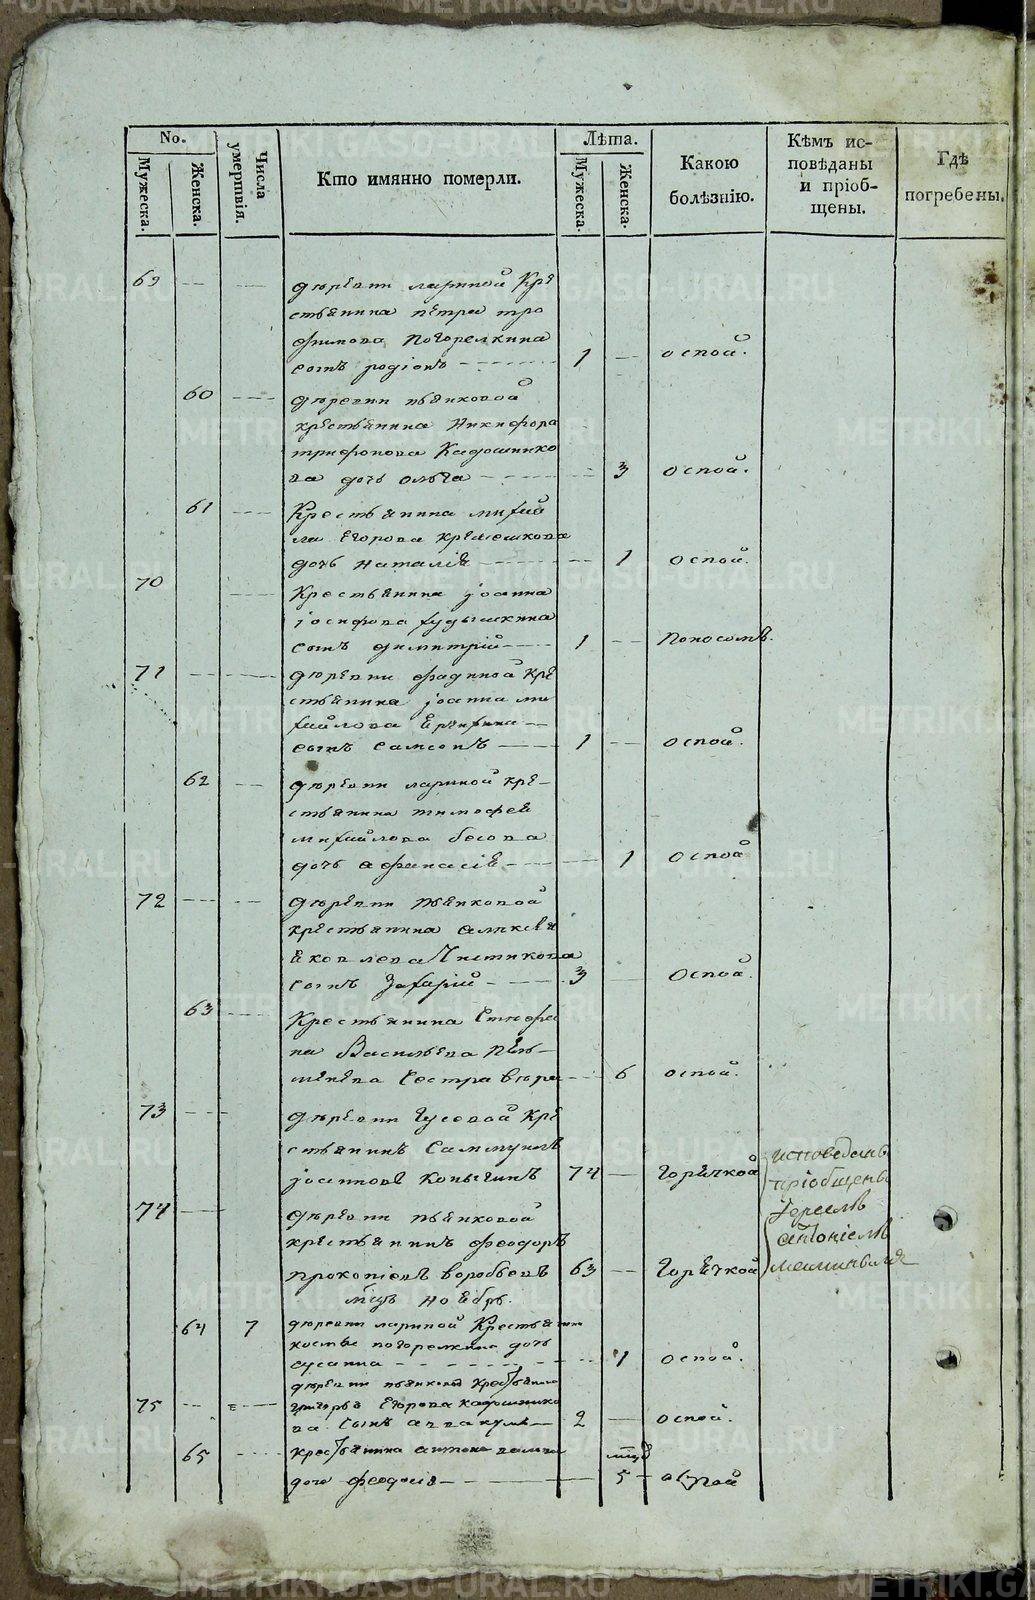 No.
Мужеска.
Женска.
Числа умертвія.
Кто имянно померли.
Лѣта.
Мужеска.
Женска.
Какою болѣзнію.
Кѣмъ исповѣданы и пріобщены.
Гдѣ погребены.
69 деревни лариной Кре
стьянина петра тро
фимова Погорелкина
сынъ родіонъ 1 оспой.
60 деревни пьянковой
крестьянина Никифора
трифонова Кадошнико
ва дочь ольга 3 оспой.
61 Крестьянина михай
ла Егорова
дочь наталія 1 оспой.
70 Крестьянина іоанна
іосифова худышкина
сынъ димитрій 1 Поносомъ.
71 деревни фадиной кре
стьянина іоанна ми
хайлова
сынъ самсонъ 1 оспой.
62 деревни лариной кре-
стьянина тимофея
михайлова бѣсова
дочь афанасія 1 оспой
72 деревни пьянковой
крестьянина аликсѣя
яковлева Чистякова
сынъ Захарій 3 Оспой.
63 Крестьянина Стефа
на Васильева Пель-
менева Сестра вѣра 6 оспой.
73 деревни Гусевой Кре
стьянинъ Самуилъ
іоанновъ Копыгинъ 74 Горячкой исповеданъ
пріобщенъ
74 деревни пьянковой Іереемъ
крестьянинъ феодоръ антоніемъ
прокопіевъ воробьевъ 63 Горячкой
мцъ ноябрь.
64 7 деревни лариной Крестьянина
космы погорелкина дочь
сусанна 1 оспой.
деревни пьянковой крестьянина
75 григорья Егорова кадошнико
ва Сынъ аввакумъ 2 оспой.
65 крестьянина антона мцов
дочь феодосія 5 оспой
METRIKI.GASO-URAL.RU